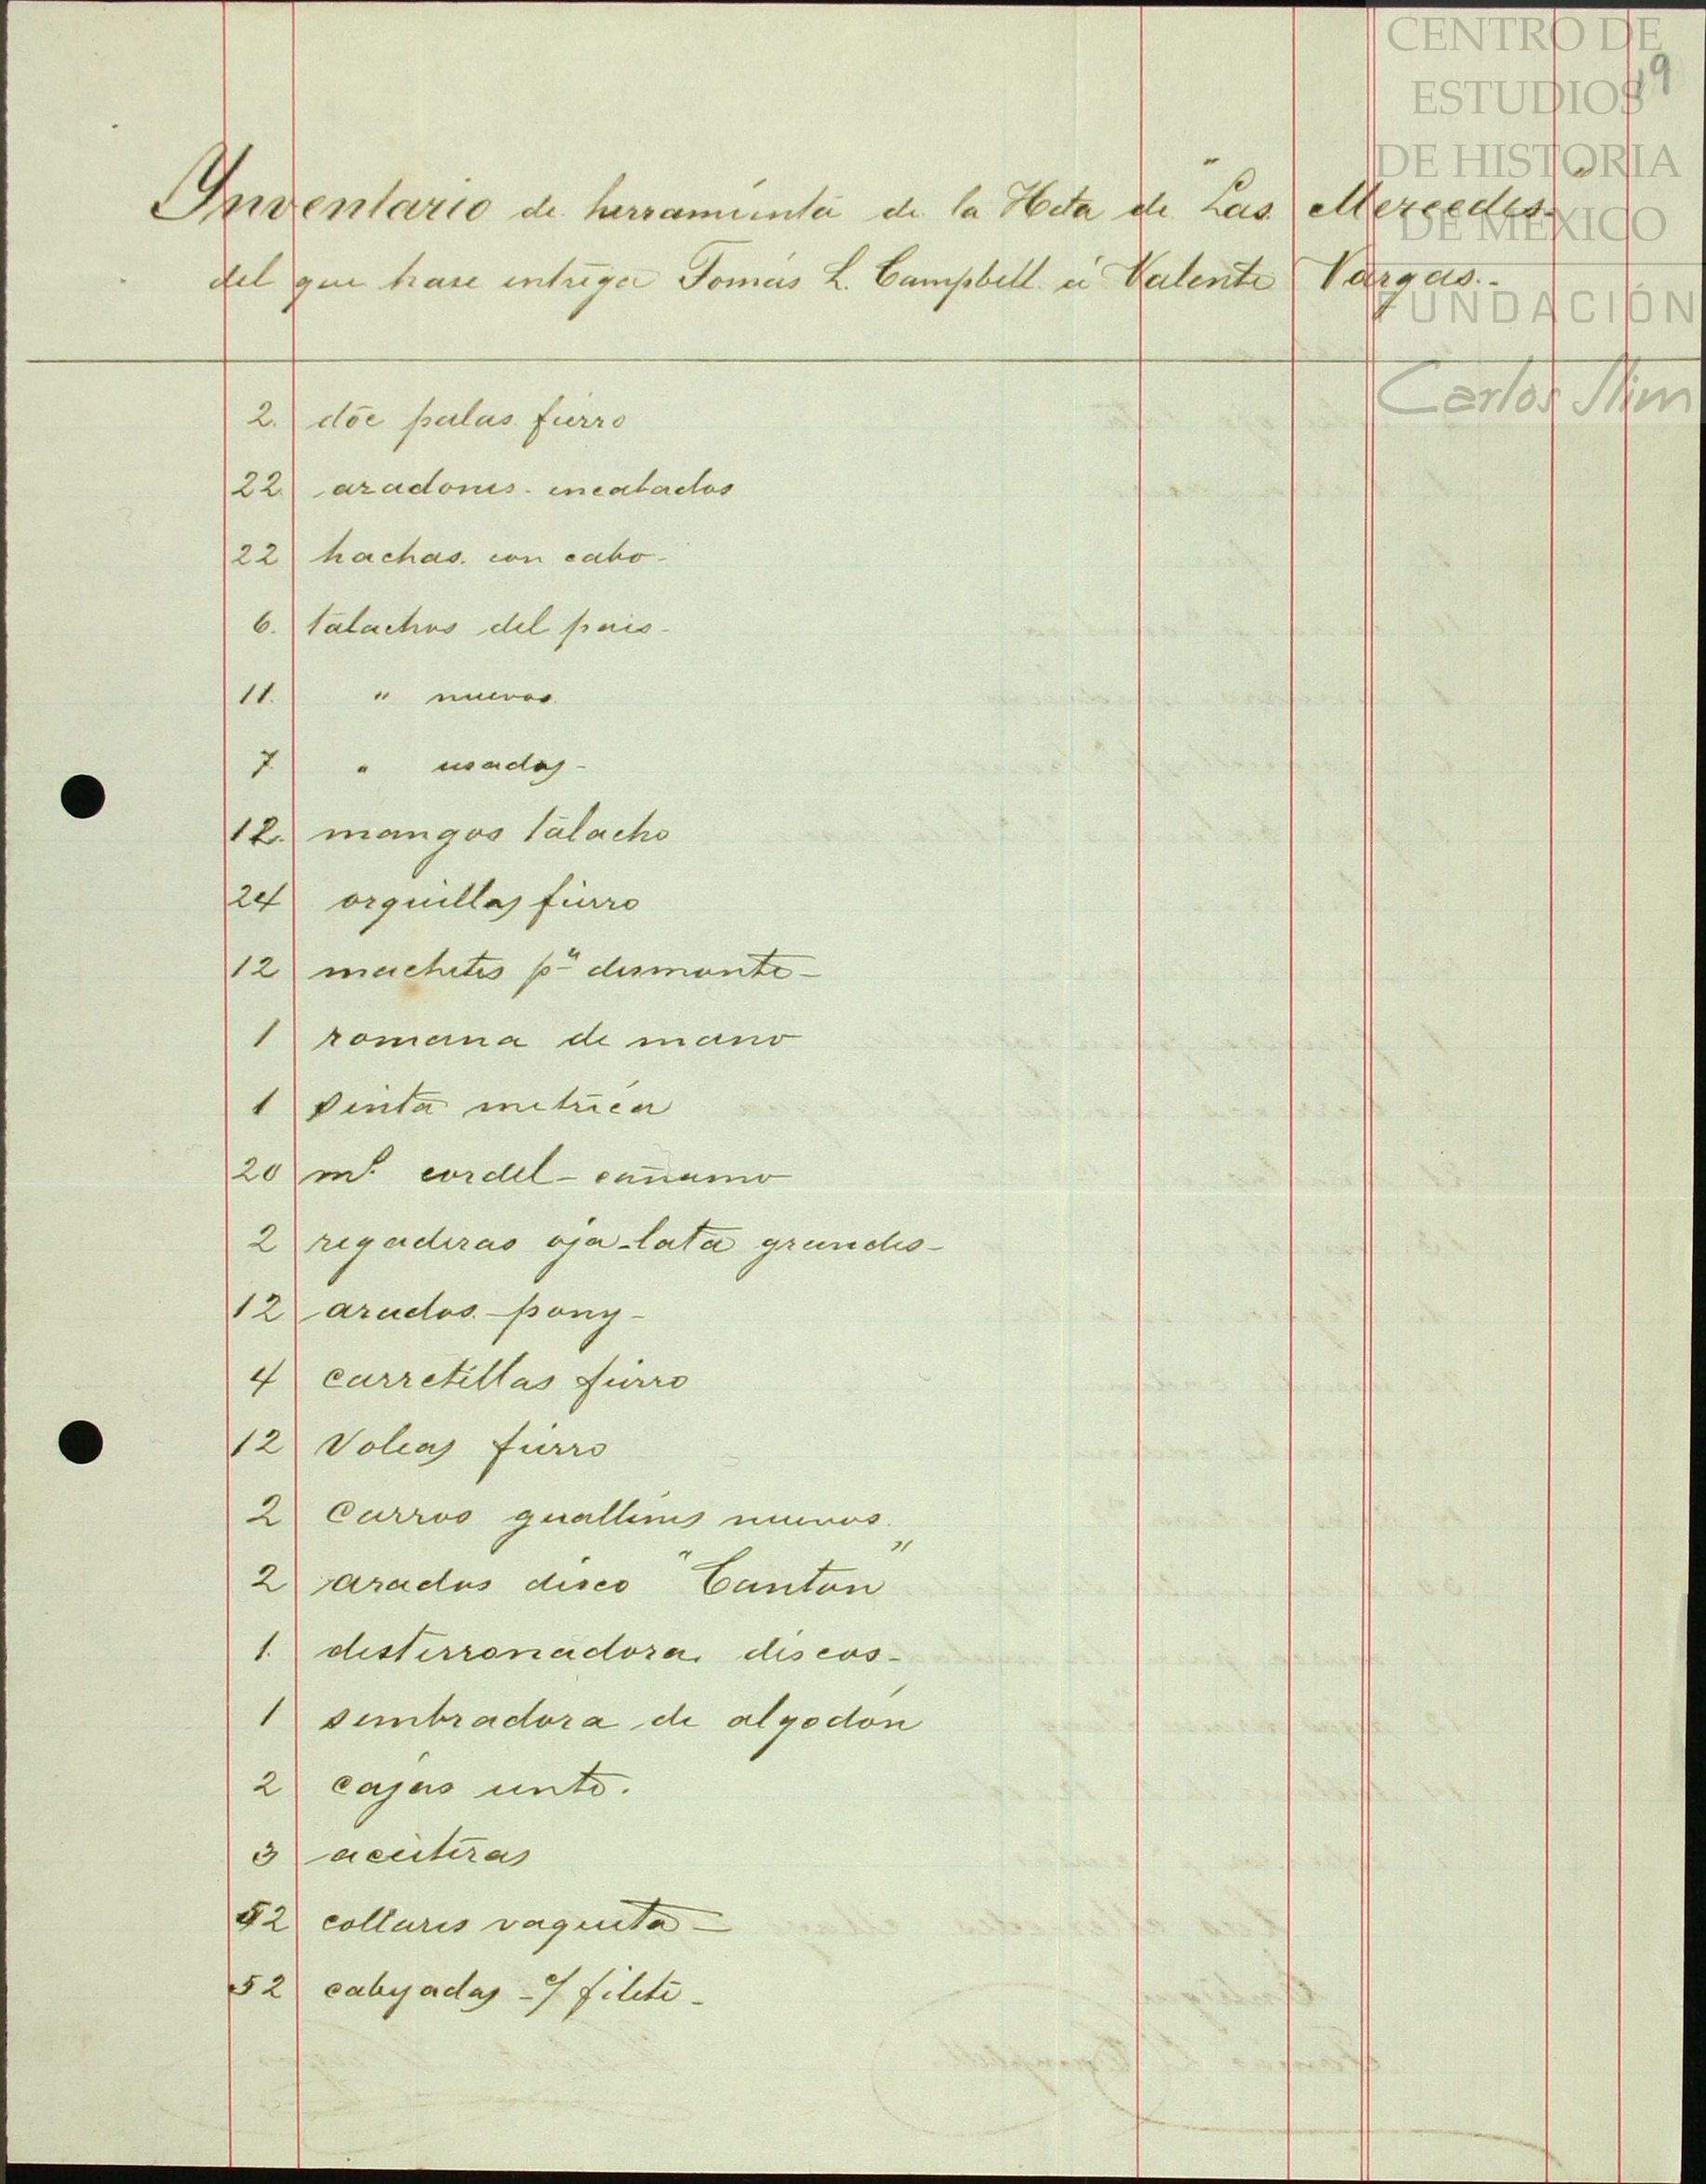 CENTRO DE
ESTUDIOS
DE HISTORIA
DE MEXICO
FUNDACIÓN
Carlos Slim
19
Ynventario de herramienta de la Hcta de "Las Mercedes"
del que hase entrega Tomás L. Campbell á Valente Vargas.-
2. dóc palas fierro
22. azadones encabados
22 hachas con cabo-
6. talachos del pais-
11. " nuevos
7 " usados-
12. mangos talacho
24 orquillas fierro
12 machetes pª desmonte-
1 romana de mano
1 sinta metrica
20 ms. cordel-cañamo
2 regaderas oja-lata grandes-
12 arados-pony-
4 carretillas fierro
12 Voleas fierro
2 Carros guallines nuevos.
2 arados disco "Canton"
1. desterronadora discos-
1 sembradora de algodón
2 cajas unto.
3 aceiteras
52 collares vaqueta-
52 cabezadas - c/ filete-